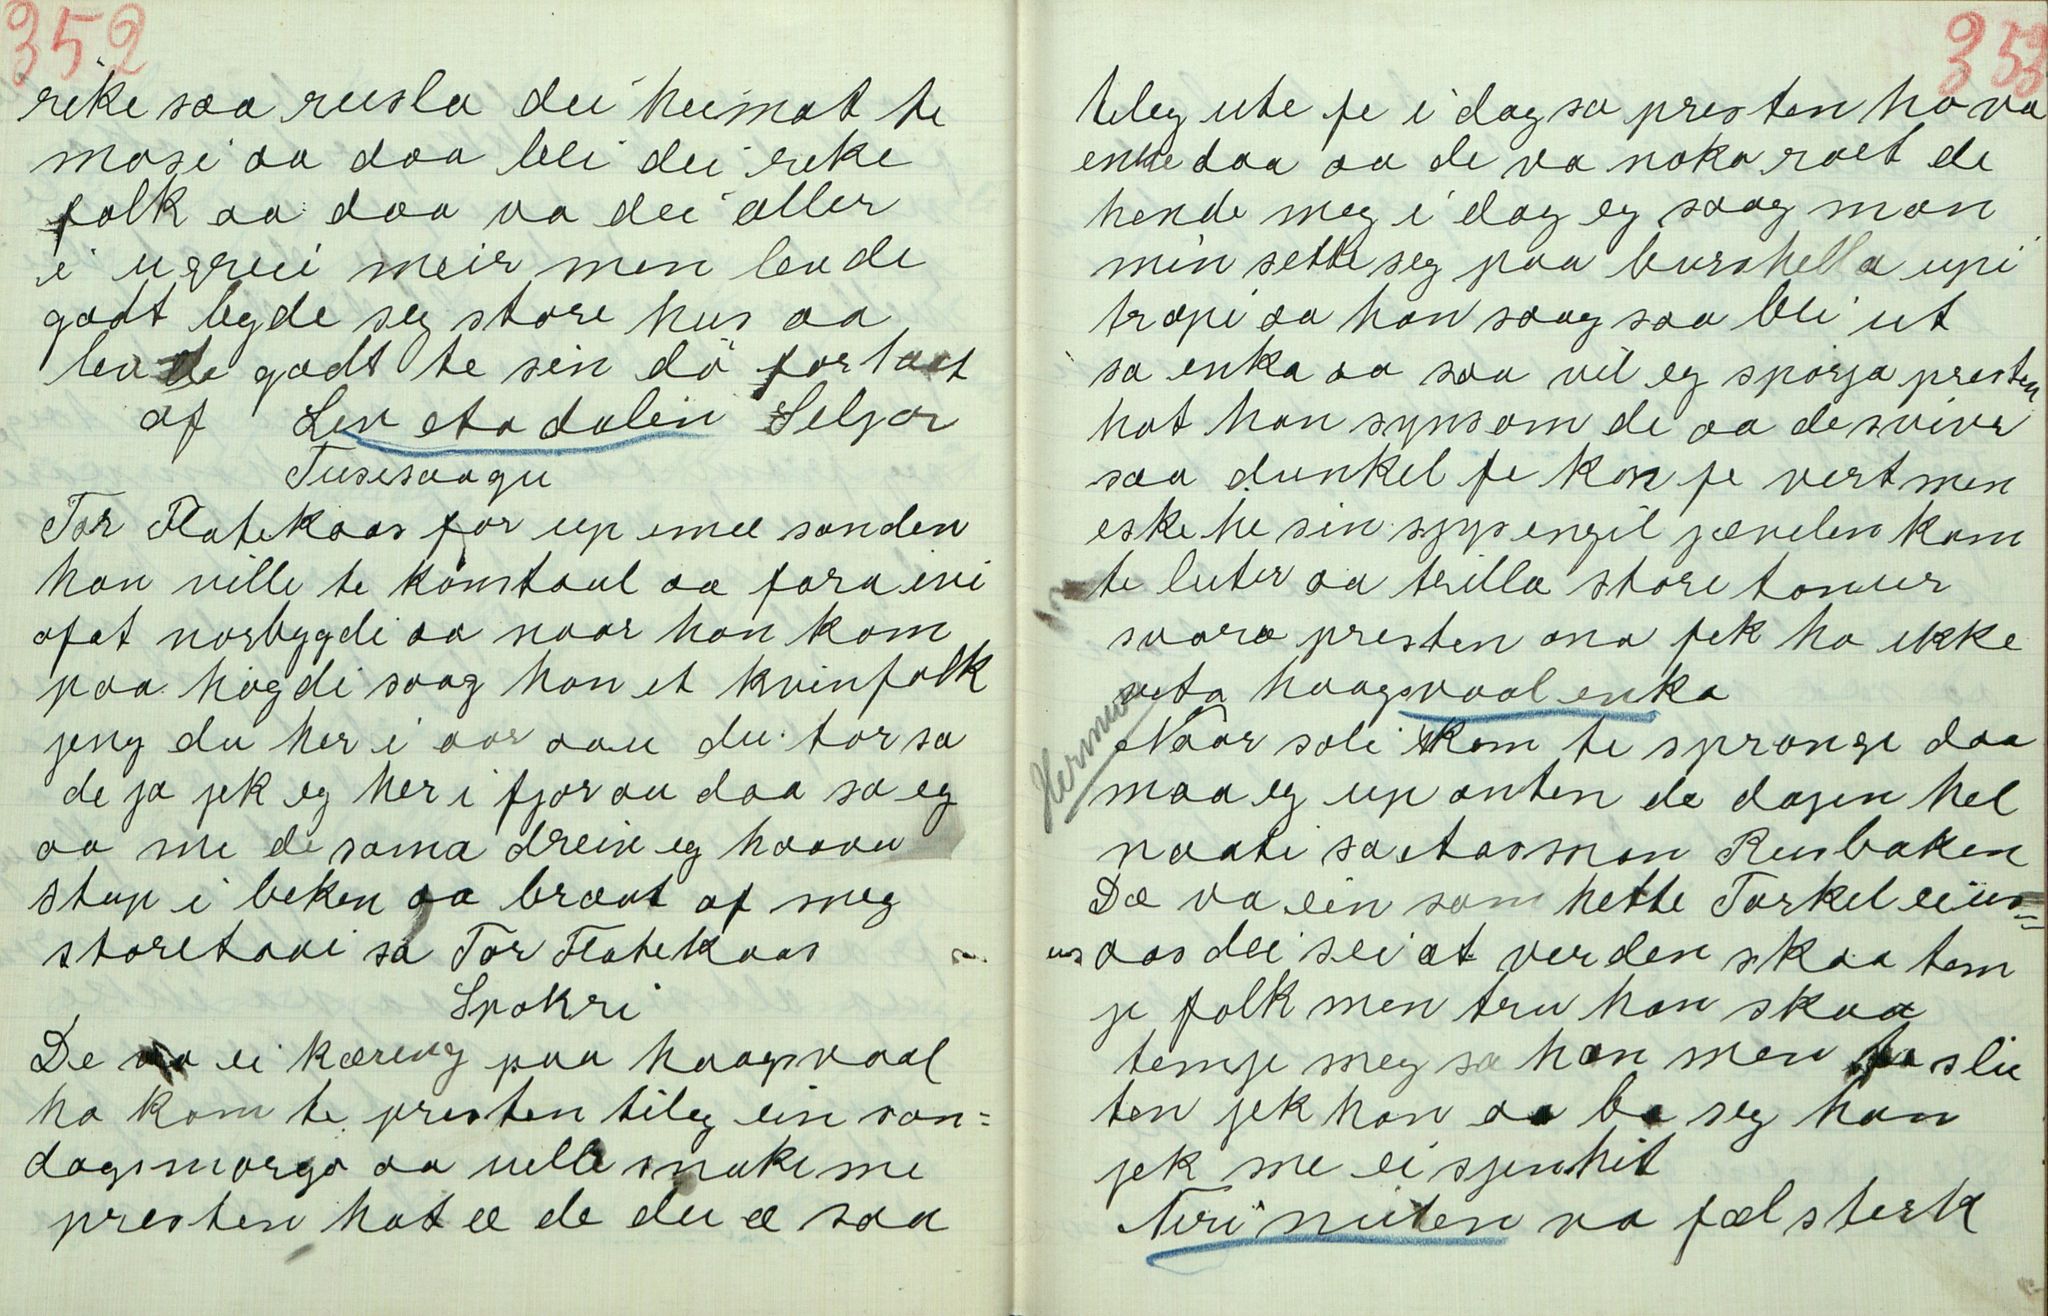 352
rike saa rusla dei heimat te
mosi aa daa blei dei rike
folk aa daa va dei aller
i ugreii meir men levde
godt bygde seg store hus aa
levde godt te sin dö fortaet
af Lev etadalin Seljor
Tusesaagu
Tor Flatekaas for up emee sanden
han ville te komstaul aa fara ivi
afat norbygdi aa naar han kom
paa högdi saag han et kvinfolk
jeng du her i aar aau du tor sa
de ja jek eg her i fjor au daa sa eg
aa me de sama drein eg haavu
stup i beken aa braut af meg
storetaai sa Tor Flatekaas
Spokri
De va ei kæring paa haagsvaal
ho kom te presten tileg ein son=
dagsmorgo aa velle snake me
presten hot æ de du æ saa
353
tileg ute fe i dag sa presten ho va
enke daa aa de va noka raet de
hende meg i dag eg saag man
min sette seg paa burshella upi
trapi aa han saag saa bli ut
sa enka aa saa vil eg sporja presten
hot han syns om de aa de svivr
saa dunkel fe kon fe vert men
eske he sin syps engil jævelen kom
te luter aa trilla store tonur
svara presten ana fek ho ikke
veta haagsvaal enka
Naar soli kom te spronge daa
maa eg up anten de dagen hel
naati sa etasmon Rusbaken
Hermo
Dæ va ein som hette Torkel eiius=
us aas dei sei at verden skaa tem
je folk men tru han skaa
temje meg sa han men te slu
ten jek han aa ba seg han
jek me ei sjenhit
Niri nuten va fæl sterk